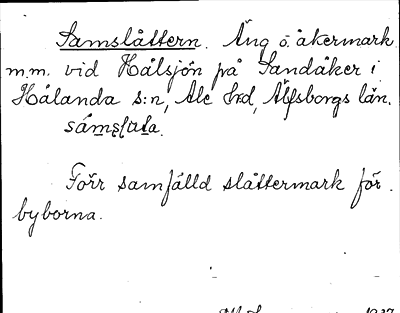 Samslåttern. Äng o. åkermark
m.m. vid Hålsjön på Sandåker i
Hålanda s:n, Ale hrd, Älfsborgs län.
Förr samfälld slåttermark för
byborna.